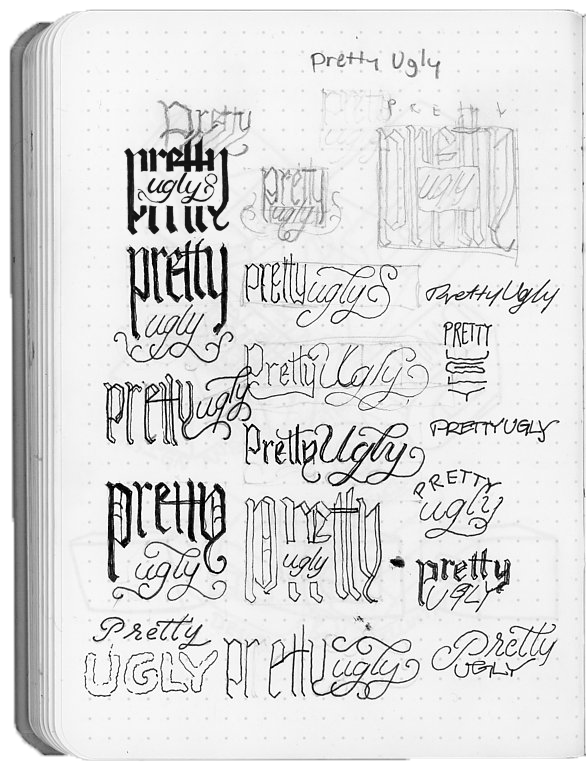 Pretty Ugly
Pretty
pretty
ugly
PRETTY
pretty
ugly
pretty
ugly
pretty
ugly
pretty
ugly
pretty ugly
Pretty Ugly
PRETTY
Pretty Ugly
pretty ugly
Pretty Ugly
PRETTY UGLY
pretty
ugly
pretty
ugly
PRETTY
ugly
pretty
UGLY
Pretty
UGLY
pretty ugly
Pretty
UGLY